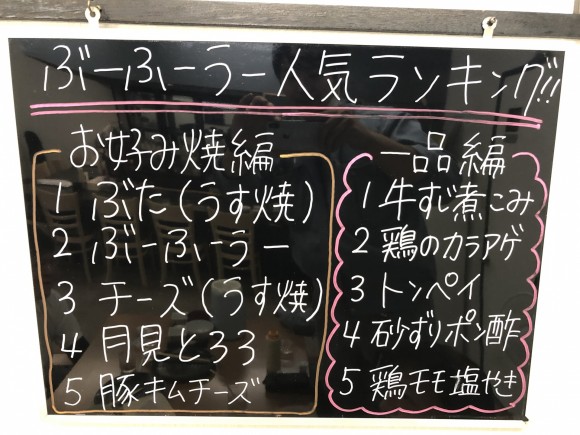 ぶーふーうー人気ランキング!!
お好み焼編
1 ぶた(うす焼)
2 ぶーふーうー
3 チーズ(うす焼)
4 月見とろろ
5 豚キムチーズ
一品編
1 牛すじ煮こみ
2 鶏のカラアゲ
3 トンペイ
4 砂ずりポン酢
5 鶏モモ塩やき